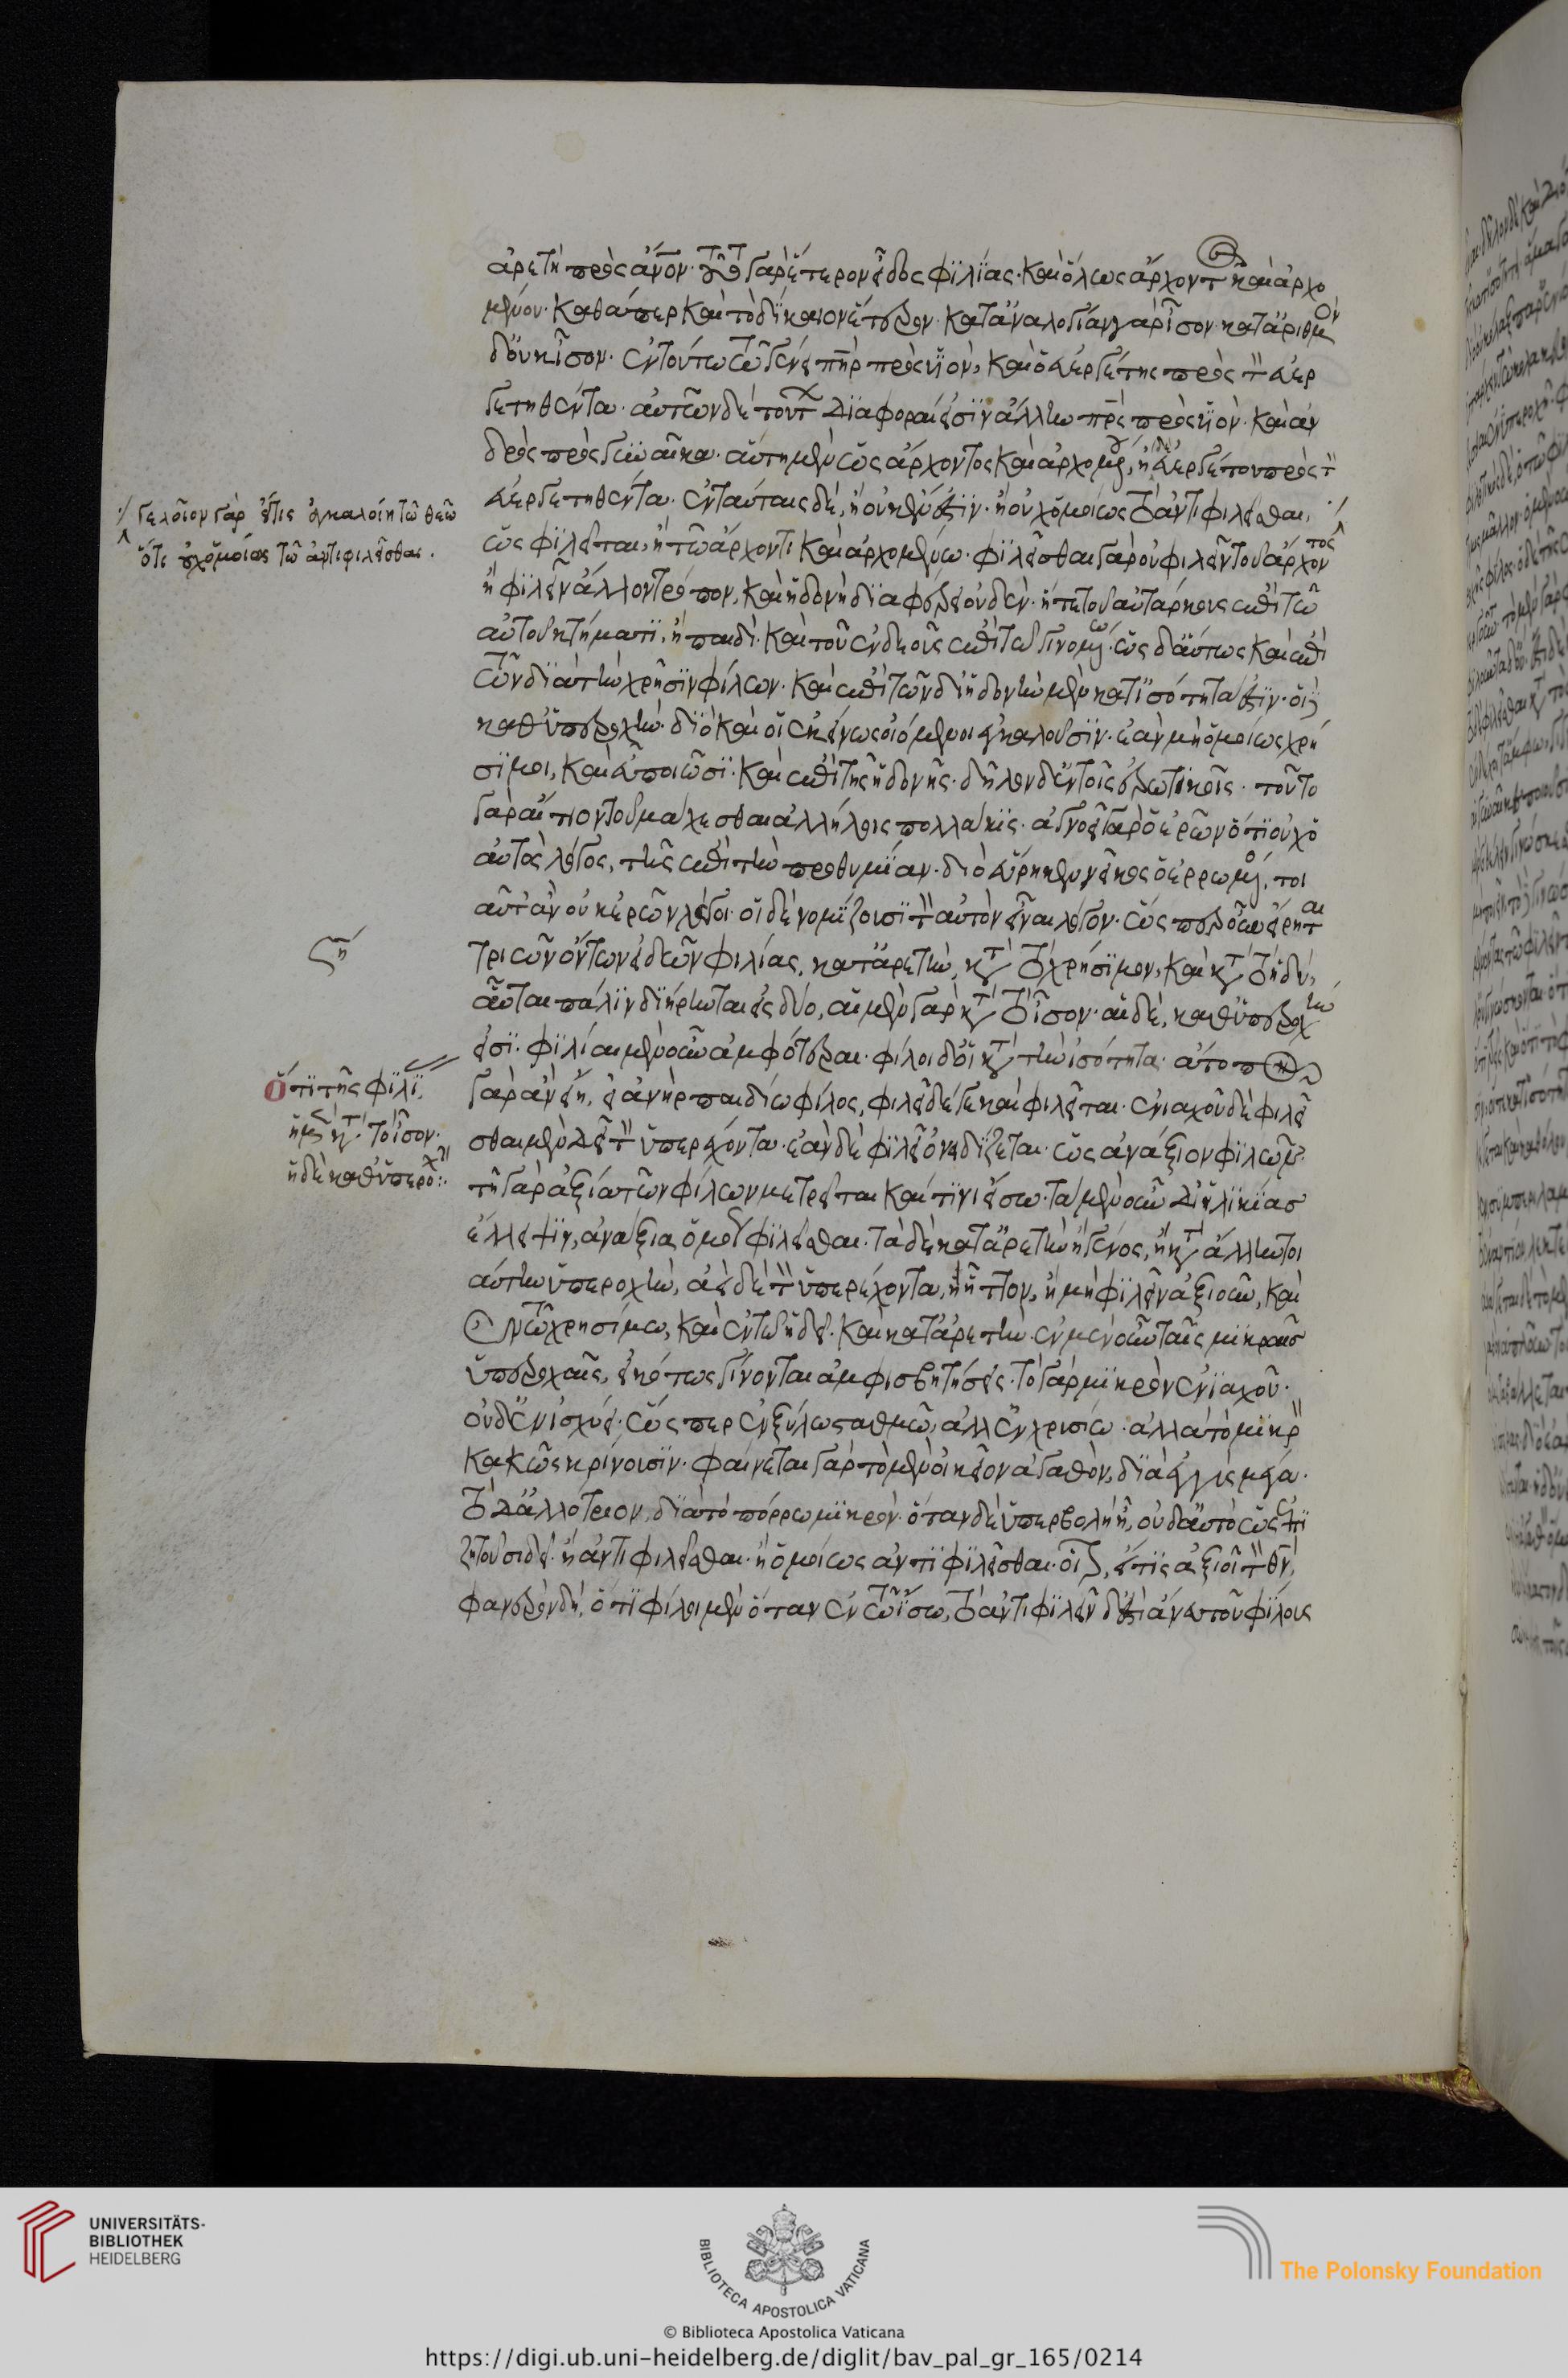 ἀρετὴ πρὸς ἄνον· τοῦτο γὰρ ἕτερον εἶδος φιλίας· καὶ ὅλως ἄρχοντος καὶ ἀρχο
μένου· καθάπερ καὶ τὸ δίκαιον ἕτερον· κατ' ἀναλογίαν γὰρ ἴσον· κατ' ἀριθμὸν
δ' οὐκ ἴσον· ἐν τούτω τῶ γένει πηρ πρὸς υἱὸν, καὶ ὁ εὐεργέτης πρὸς τὸν εὐερ
γετηθέντα· αὐτῶν δὲ τούτων διαφοραὶ εἰσὶν ἄλλη πρς πρὸς υἱὸν· καὶ ἀν
δρὸς πρὸς γυναῖκα· αὕτη μὲν ὡς ἄρχοντος καὶ ἀρχομένου, ἡ δὲ εὐεργέτου πρὸς τὸν
εὐεργετηθέντα· ἐν ταύταις δὲ, ἢ οὐκ ἔνεστιν· ἢ οὐχ ὁμοίως τὸ ἀντιφιλεῖσθαι,
ὡς φιλεῖται, ἢ τῶ ἄρχοντι καὶ ἀρχομένω· φιλεῖσθαι γὰρ οὐ φιλεῖν τοῦ ἄρχοντος
ἢ φιλεῖν ἄλλον τρόπον, καὶ ἡδονὴ διαφέρει οὐδὲν· ἥτε τοῦ αὐτάρκους ἐπὶ τῶ
αὐτοῦ κτήματι, ἢ παιδὶ· καὶ τοῦ ἐνδεοῦς ἐπὶ τῶ γινομένω· ὡς δ' αὔτως καὶ ἐπὶ
τῶν διὰ τὴν χρῆσιν φίλων· καὶ ἐπὶ τῶν δι' ἡδονὴν μὲν κατ' ἰσότητα εἰσὶν· οἱ δὲ
καθ' ὑπεροχὴν· διὸ καὶ οἱ ἐκείνως οἰόμενοι ἐγκαλοῦσιν· ἐὰν μὴ ὁμοίως χρή
σιμοι, καὶ εὖ ποιῶσι· καὶ ἐπὶ τῆς ἡδονῆς· δῆλον δ' ἐν τοῖς ἐρωτικοῖς· τοῦτο
γὰρ αἴτιον τοῦ μάχεσθαι ἀλλήλοις πολλάκις· ἀγνοεῖ γὰρ ὁ ἐρῶν ὅτι οὐχ ὁ
αὐτὸς λόγος, τῆς ἐπὶ τὴν προθυμίαν· διὸ εὕρηκεν νεῖκος ὁ ἐρρωμένος, τοι
αῦτ' ἂν οὐκ ἐρῶν λέγοι· οἱ δὲ νομίζουσι τὸν αὐτὸν εἶναι λόγον· ὡς πρ οὖν εἴρηται
τριῶν ὄντων εἰδῶν φιλίας, κατ' ἀρετὴν, κατὰ τὸ χρήσιμον, καὶ κατὰ τὸ ἡδὺ,
αὗται πάλιν διήρηνται εἰς δύο, αἱ μὲν γὰρ κατὰ τὸ ἴσον· αἱ δὲ, καθ' ὑπεροχὴν
εἰσὶ· φιλίαι μὲν οὖν ἀμφότεραι· φίλοι δ' οἱ κατὰ τὴν ἰσότητα· ἄτοπον
γὰρ ἂν εἴη, εἰ ἀνὴρ παιδίω φίλος, φιλεῖ δέ γε καὶ φιλεῖται· ἐνιαχοῦ δὲ φιλεῖ
σθαι μὲν δεῖ τὸν ὑπερέχοντα· ἐὰν δὲ φιλεῖ ὀνειδίζεται· ὡς ἀνάξιον φιλῶν·
τῇ γὰρ ἀξία τῶν φίλων μετρεῖται καὶ τινι ἴσω· τὰ μὲν οὖν δι' ἡλικίας
ἔλλειψιν, ἀνάξια ὁμοῦ φιλεῖσθαι· τὰ δὲ κατ' ἀρετὴν ἢ γένος, ἢ κατὰ ἄλλην τοι
αύτην ὑπεροχὴν, ἀεὶ δὲ τὸν ὑπερέχοντα, ἢ ἧττον, ἢ μὴ φιλεῖν ἀξιοῦν, καὶ
ἐν τῶ χρησίμω, καὶ ἐν τῶ ἡδεῖ· καὶ κατ' ἀρετὴν· ἐν μὲν οὖν ταῖς μικραῖς
ὑπεροχαῖς, εἰκότως γίνονται ἀμφισβητήσεις· τὸ γὰρ μικρὸν ἐνιαχοῦ·
οὐδὲν ἰσχύει· ὥσπερ ἐν ξύλω σταθμῶ, ἀλλ' ἐν χρυσίω· ἀλλὰ τὸ μικρὸν
κακῶς κρίνουσιν· φαίνεται γὰρ τὸ μὲν οἰκεῖον ἀγαθὸν, διὰ ἐγγὺς μέγα·
τὸ δ' ἀλλότριον, διὰ τὸ πόρρω μικρὸν· ὅταν δὲ ὑπερβολὴ ἦ, οὐδ' αὐτὸ ὡς ἐπι
ζητοῦσι δεῖ· ἢ ἀντιφιλεῖσθαι· ἢ ὁμοίως ἀντιφιλεῖσθαι· οἷον, εἴ τις ἀξιοῖ τὸν θν,
φανερὸν δὴ, ὅτι φίλοι μὲν ὅταν ἐν τῶ ἴσω, τὸ ἀντιφιλεῖν δ' ἐστὶ ἄνευ τοῦ φίλους
./ γελοῖον γὰρ εἴτις ἐγκαλοίη τῶ θεῶ
ὅτι οὐχ ὁμοίως τῶ ἀντιφιλεῖσθαι.
ση
ὅτι τῆς φιλί,
ἡ μὲν κατὰ τὸ ἴσον·
ἡ δὲ καθ' ὑπεροχὴν:
UNIVERSITÄTS-
BIBLIOTHEK
HEIDELBERG
BIBLIOTECA APOSTOLICA VATICANA
The Polonsky Foundation
© Biblioteca Apostolica Vaticana
https://digi.ub.uni-heidelberg.de/diglit/bav_pal_gr_165/0214